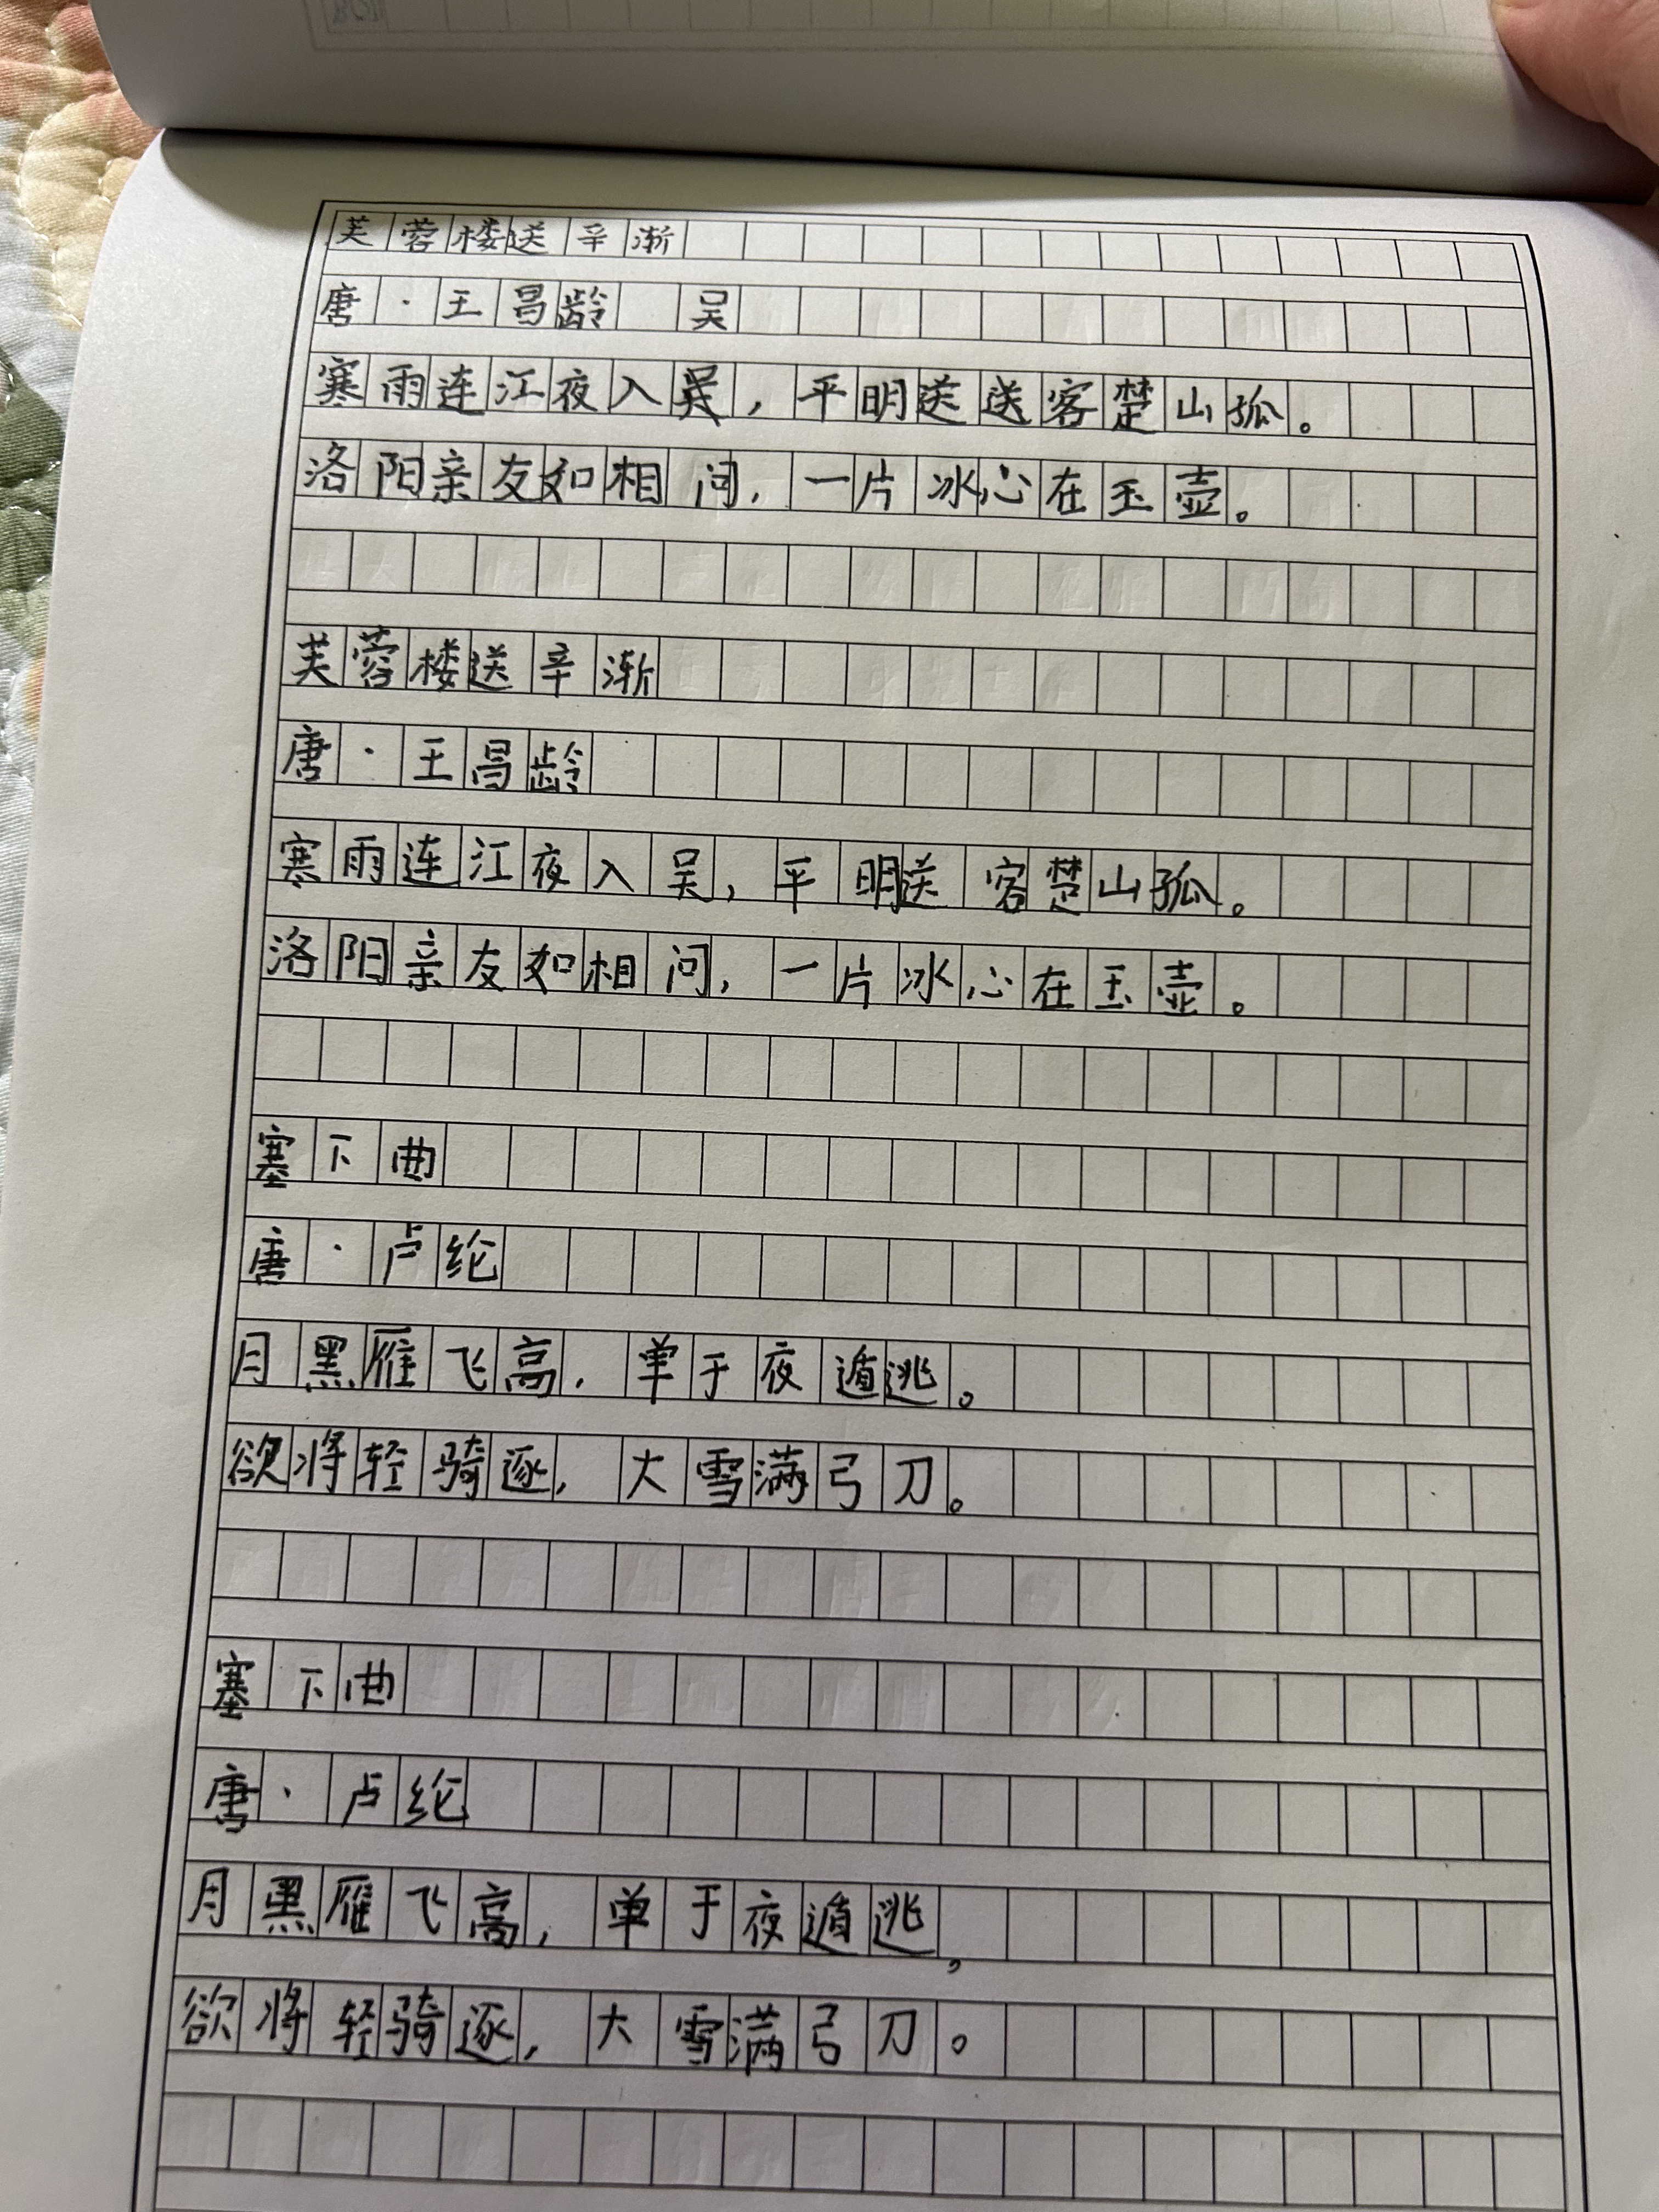 芙蓉楼送辛渐
唐·王昌龄 吴
寒雨连江夜入吴,平明送送客楚山孤。
洛阳亲友如相问,一片冰心在玉壶。
芙蓉楼送辛渐
唐·王昌龄
寒雨连江夜入吴,平明送客楚山孤。
洛阳亲友如相问,一片冰心在玉壶。
塞下曲
唐·卢纶
月黑雁飞高,单于夜遁逃。
欲将轻骑逐,大雪满弓刀。
塞下曲
唐·卢纶
月黑雁飞高,单于夜遁逃,
欲将轻骑逐,大雪满弓刀。